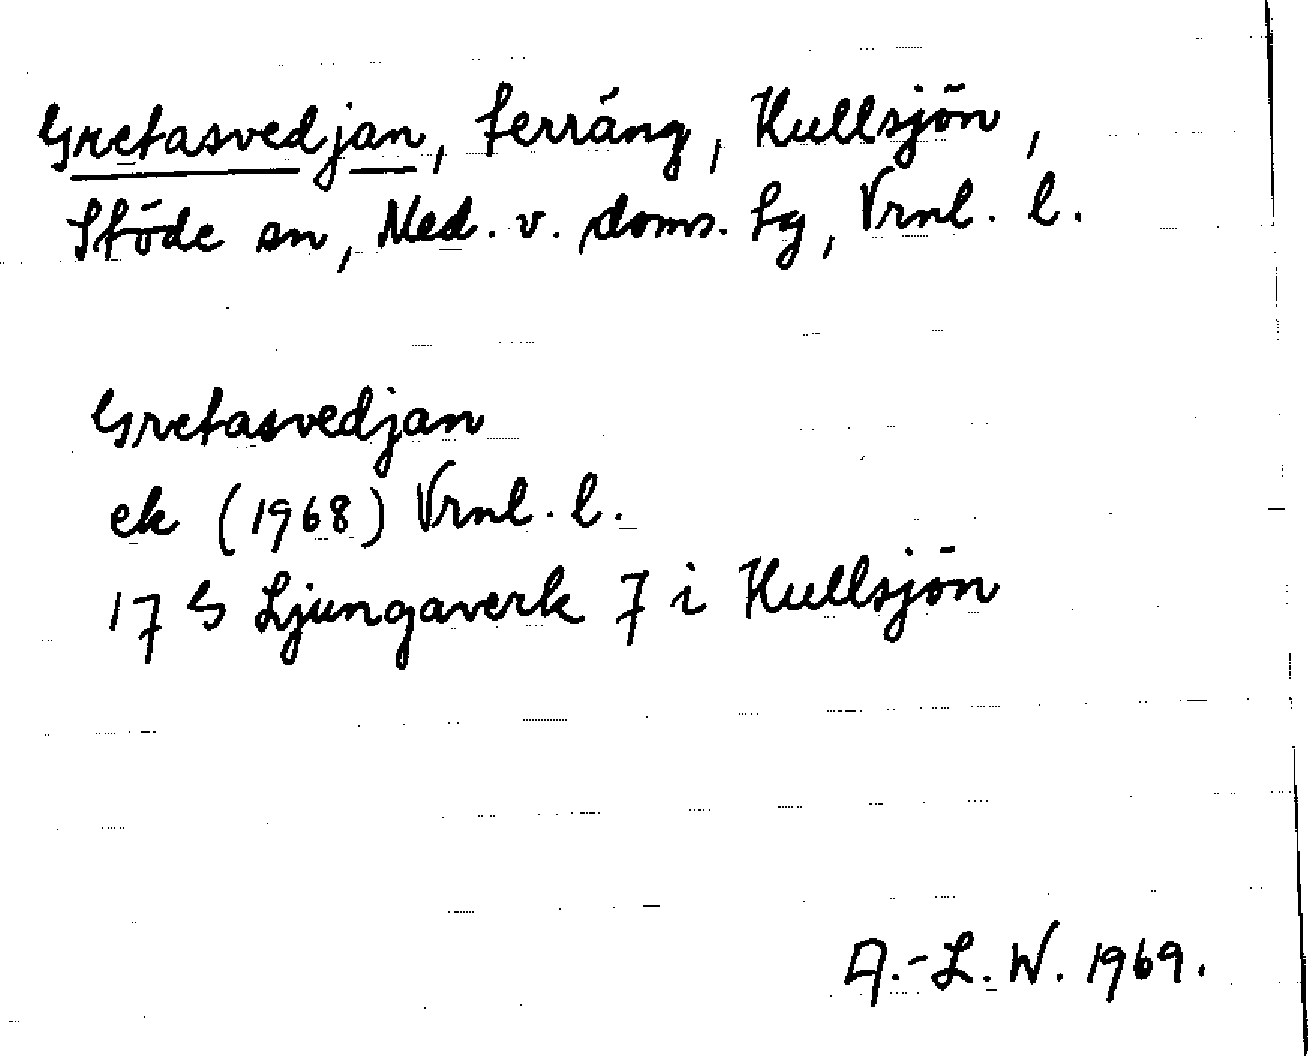 Gretasvedjan, terräng, Kullsjön,
Stöde sn, Med. v. doms. tg, Vrnl. l.
Gretasvedjan
ek (1968) Vrnl. l.
17 G Ljungaverk 7 i Kullsjön
A.-L. W. 1969.